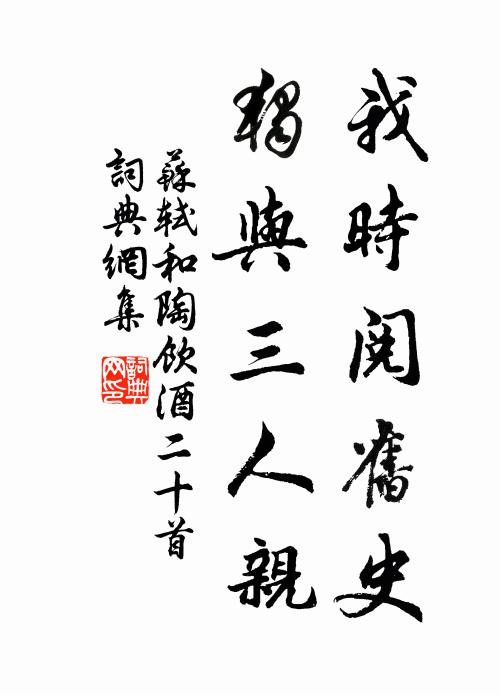 我時閱舊史
獨與三人親
蘇軾和陶飲酒二十首
詞典網集
詞典網印